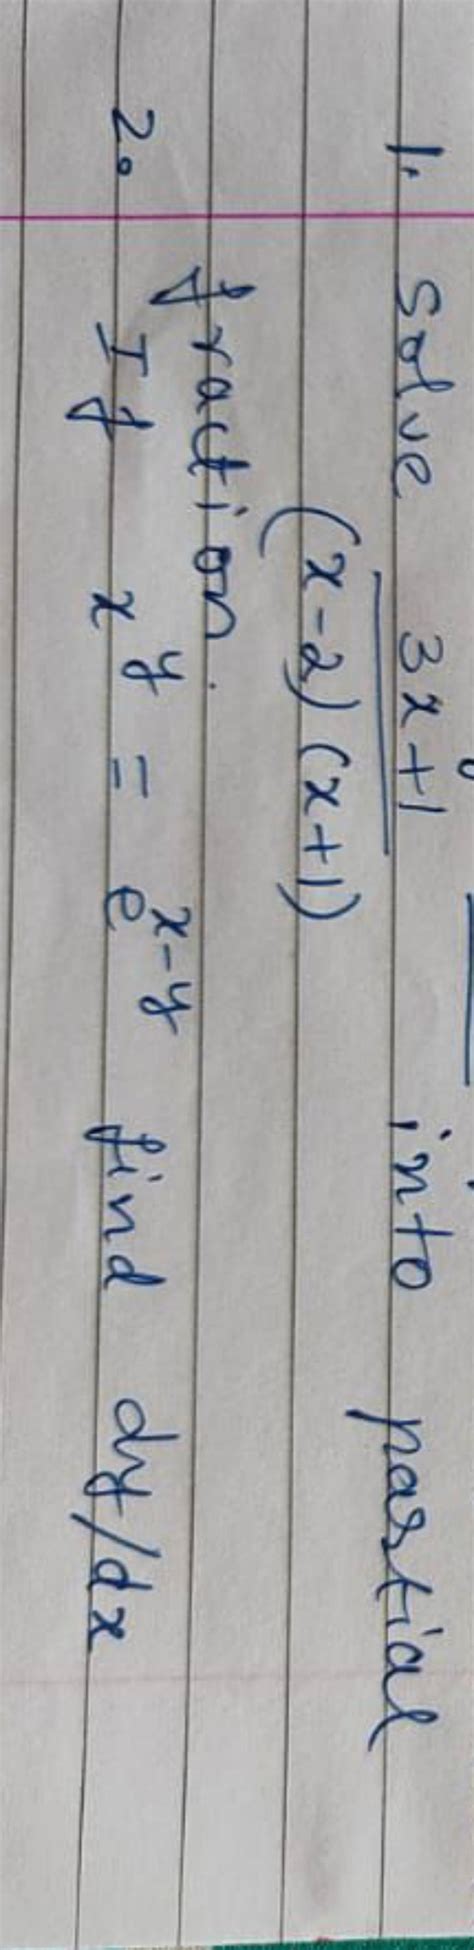 1. Solve 3x+1 into partial
(x-2) (x+1)
fraction.
2. If x^y = e^x-y find dy/dx